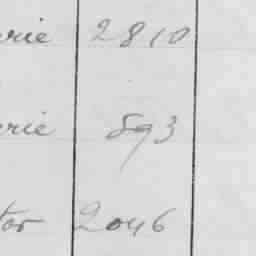 rie 2810
rie 893
tor 2046